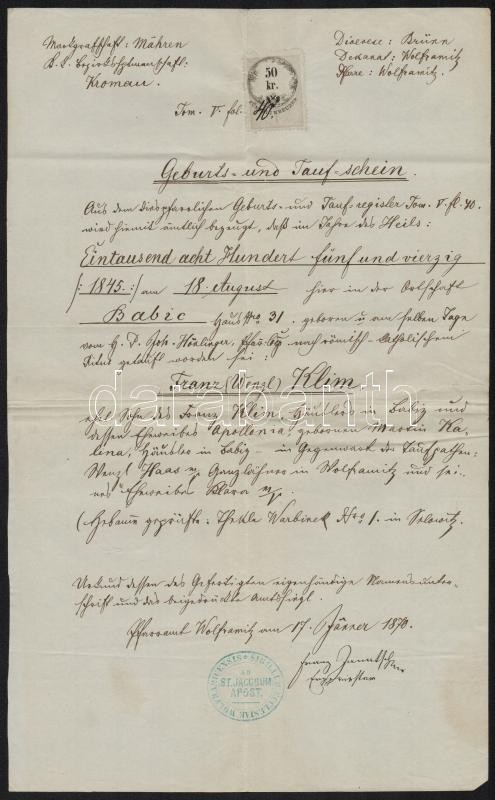 Markgrafschaft: Mähren
K. K. Bezirkshptmannschaft:
Kromau.
Dioecese: Brünn
Dekanat: Wolframitz
Pfarre: Wolframitz.
50
kr.
Tom. V. fol. 40
Geburts- und Tauf-schein.
Aus dem diespfarrlichen Geburts- und Taufs-register Tom. V. fl. 40.
wird hiemit ämtlich bezeugt, daß im Jahre des Heils:
Eintausend acht Hundert fünf und vierzig
/: 1845. :/ am 18. August hier in der Ortschaft
Babic Haus Nro 31. geboren u. am selben Tage
von H. P. Joh. nach römisch-katholischem
Ritus getauft worden sei:
Franz (Wenzl) Klim
ehl. Sohn des Franz Klein, Häuslers in Babiz und
dessen Eheweibes Apollonia, gebornen Martin Ka-
lina, Häusler in Babiz - in Gegenwart der Taufpathen:
Wenzl Haas Ganzlöhner in Wolframitz und sei-
nes Eheweibes Klara
(Hebamme geprüfte: Thekla Nro 1. in Selowitz.
Urkund dessen des Gefertigten eigenhändige Namensunter-
schrift und das beigedrückte Amtssiegl.
Pfarramt Wolframitz am 17. Jänner 1870.
Franz
SIGILL ECCLESIAE WOLFRAMICENSIS
AD
ST. JACOBUM
APOST.
darabanth